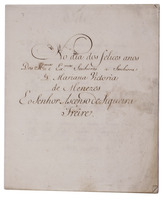 No dia dos felices anos
Da Illma. e Exma. Senhora a Senhora
D. Marianna Victoria
de Menezes
E o Senhor Ascenso de Siqueira
Freire